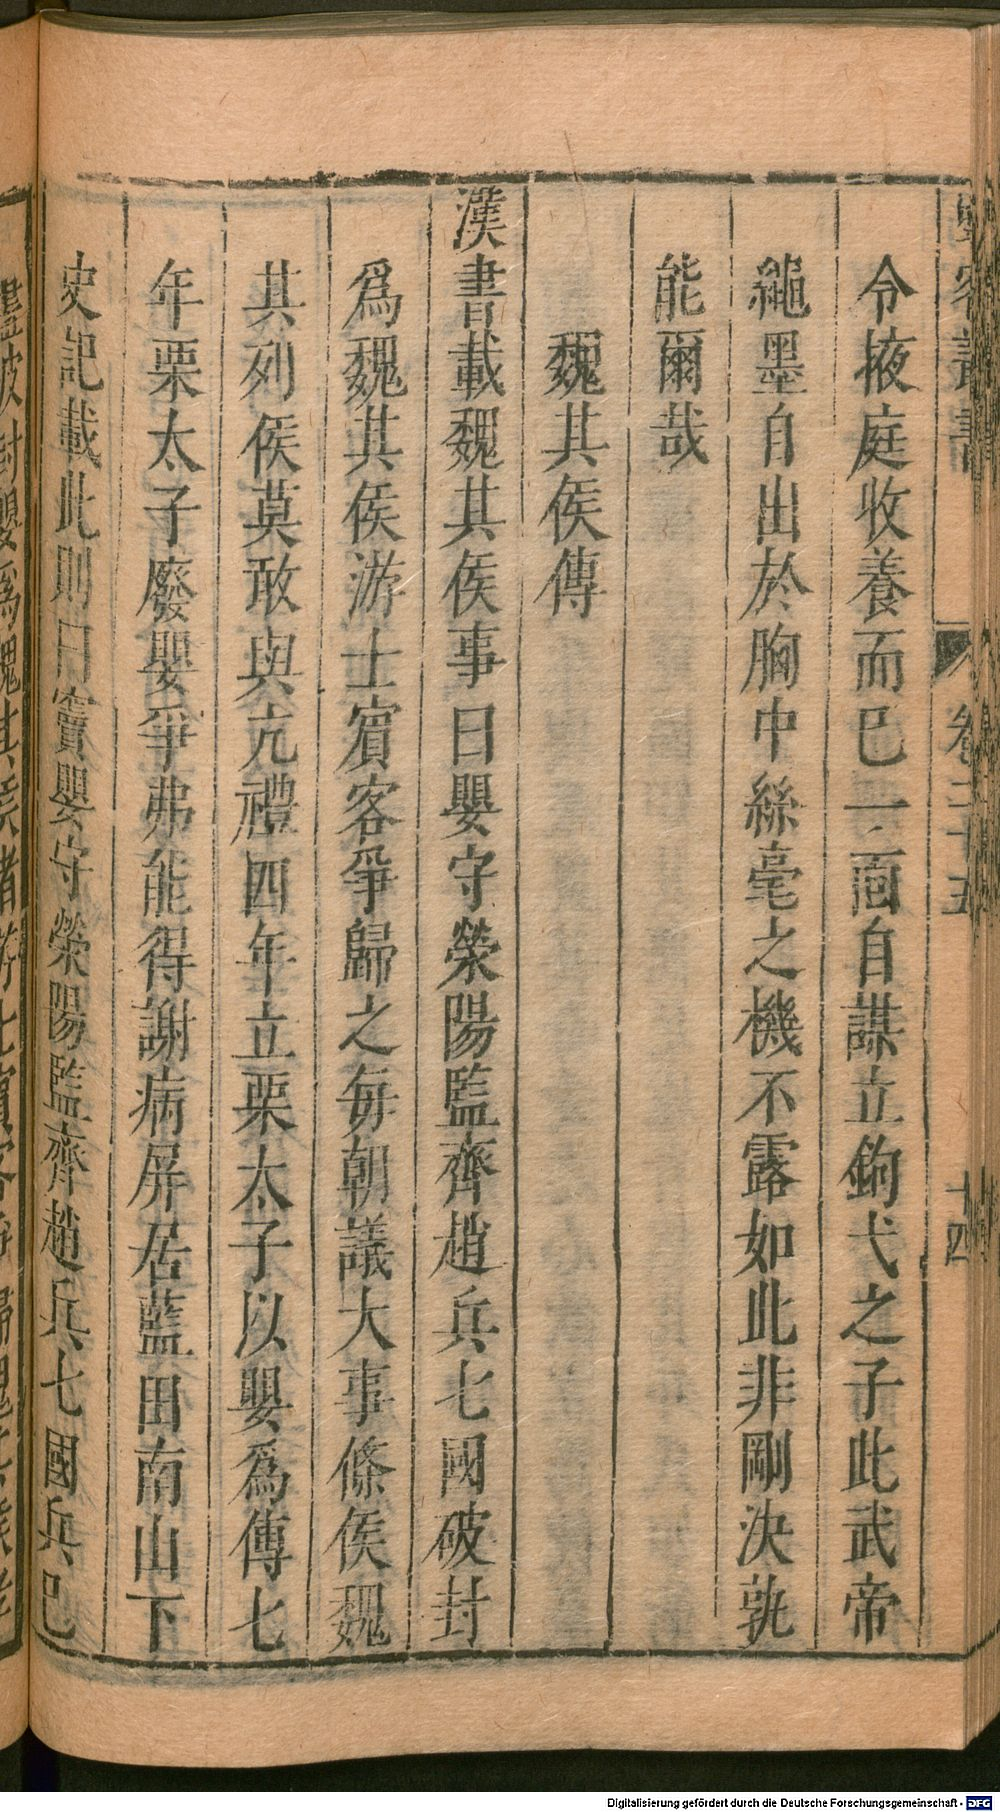 卷二十五
十四
令掖庭收養而已一面自謀立鉤弋之子此武帝
繩墨自出於胸中絲毫之機不露如此非剛決孰
能爾哉
魏其侯傳
漢書載魏其侯事曰嬰守滎陽監齊趙兵七國破封
爲魏其侯游士賓客爭歸之每朝議大事條侯魏
其列侯莫敢與亢禮四年立栗太子以嬰爲傅七
年栗太子廢嬰爭弗能得謝病屏居藍田南山下
史記載此則曰竇嬰守滎陽監齊趙兵七國兵已
Digitalisierung gefördert durch die Deutsche Forschungsgemeinschaft - DFG